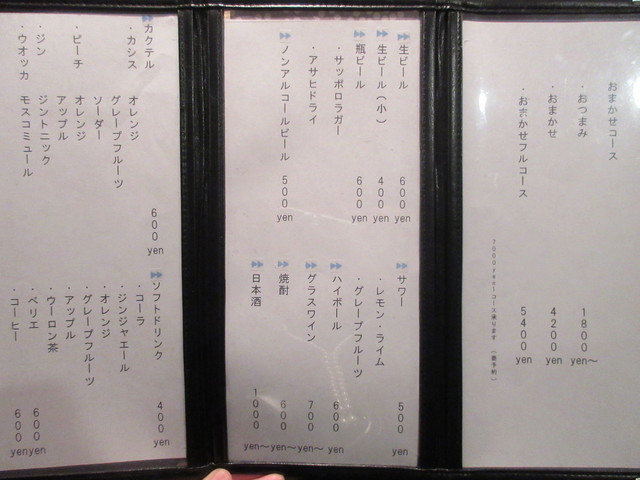 おまかせコース
・おつまみ 1800 yen～
・おまかせ 4200 yen
・おまかせフルコース 5400 yen
7000yenコース承ります (要予約)
生ビール 600 yen
生ビール(小) 400 yen
瓶ビール 600 yen
・サッポロラガー
・アサヒドライ
ノンアルコールビール 500 yen
サワー 500 yen
・レモン・ライム
・グレープフルーツ
ハイボール 600 yen
グラスワイン 700 yen～
焼酎 600 yen～
日本酒 1000 yen～
カクテル 600 yen
・カシス オレンジ
グレープフルーツ
ソーダー
・ピーチ オレンジ
アップル
・ジン ジントニック
・ウオッカ モスコミュール
ソフトドリンク 400 yen
・コーラ
・ジンジャエール
・オレンジ
・グレープフルーツ
・アップル
・ウーロン茶
・ペリエ 600 yen
・コーヒー 600 yen